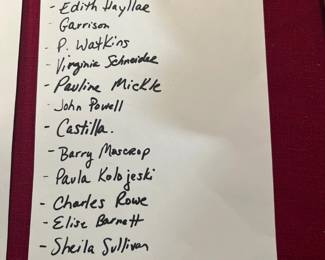 - Edith Hayllae
- Garrison
- P. Watkins
- Virginia Schneidee
- Pauline Mickle
- John Powell
- Castilla.
- Barry Mascrop
- Paula Kolojeski
- Charles Rowe
- Elise Barnett
- Sheila Sullivan